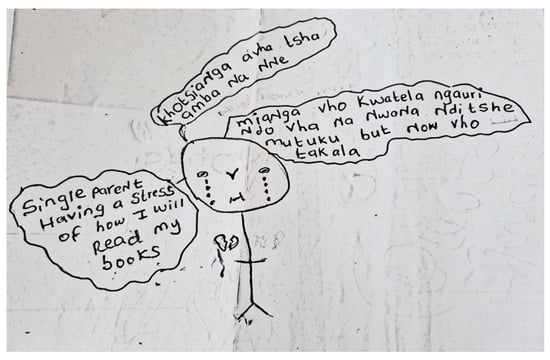 khotsianga avha tsha
amba na nne
mianga vho kwatela ngauri
ndo vha na nwona nditshe
mutuku but now vho
takala
Single parent
Having a stress
of how I will
Read my
books